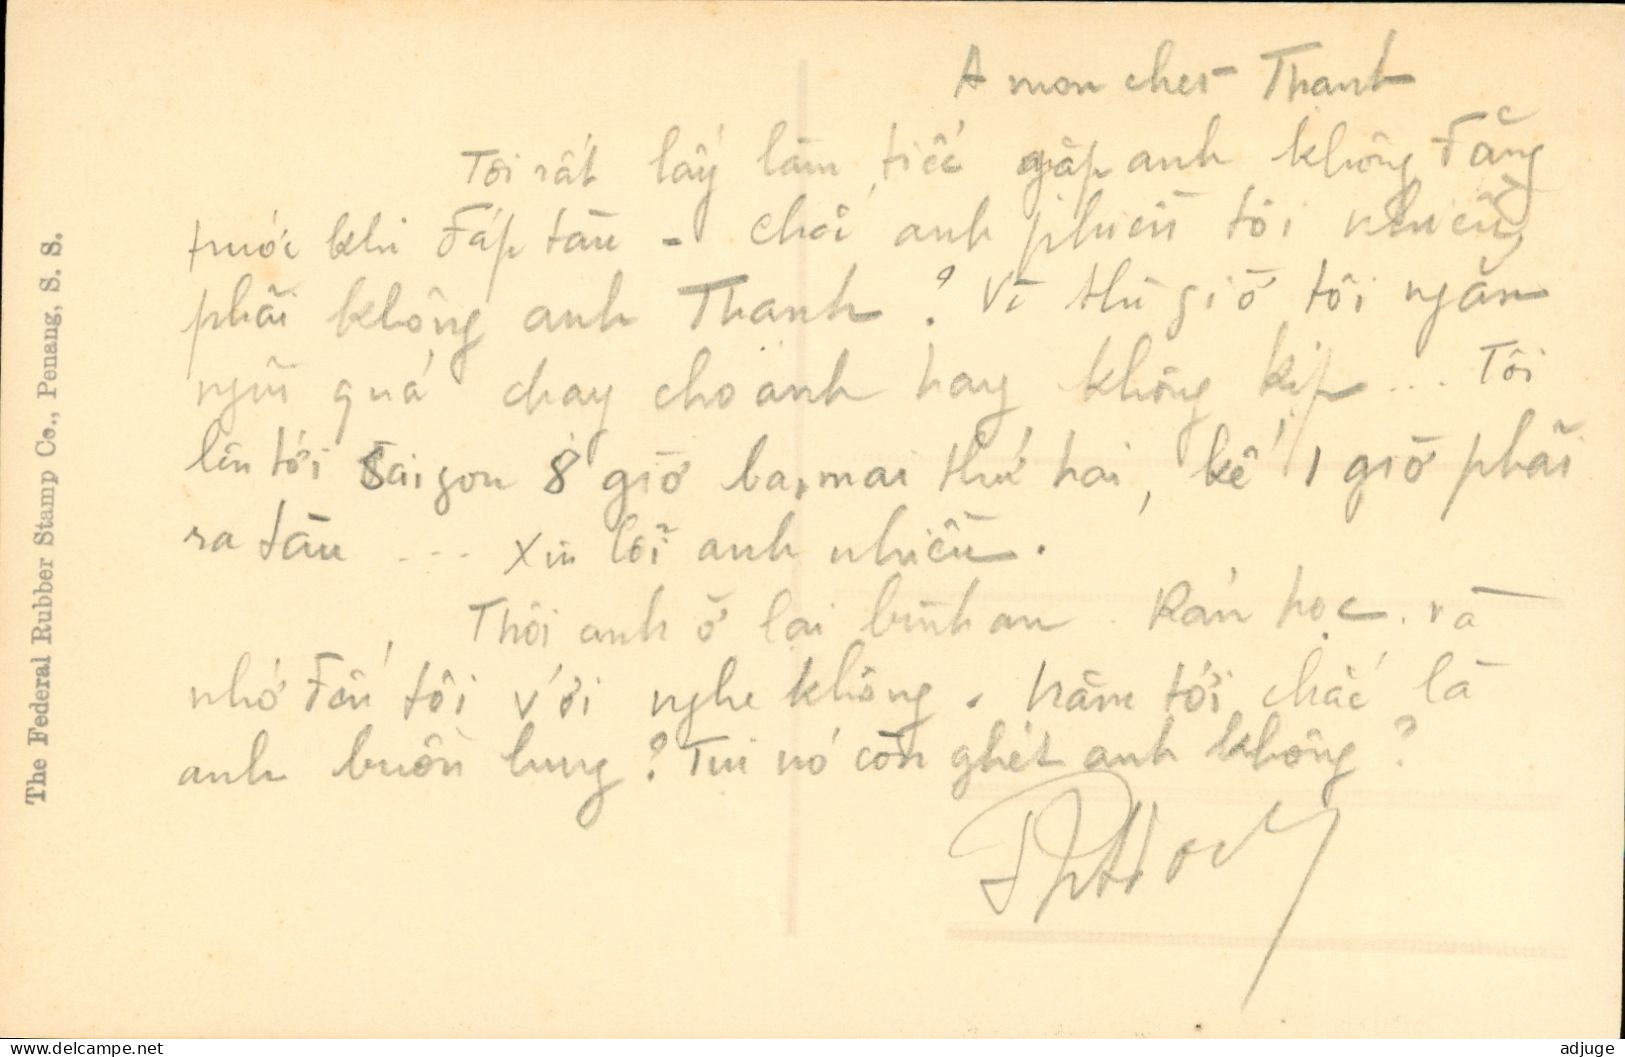 A mon cher Thanh
Tôi rất lấy làm tiếc gặp anh không đặng
trước khi đáp tàu - chắc anh phiền tôi nhiều,
phải không anh Thanh? Vì thì giờ tôi ngắn
ngũi quá chạy cho anh hay không kịp ... Tôi
lên tới Saigon 8 giờ ba, mai thứ hai, kế 1 giờ phải
ra tàu ... Xin lỗi anh nhiều.
Thôi anh ở lại bình an. Rán học. và
nhớ đến tôi với nghe không. Năm tới chắc là
anh buồn lung? Tui nó còn ghét anh không?
The Federal Rubber Stamp Co., Penang, S. S.
www.delcampe.net
adjuge